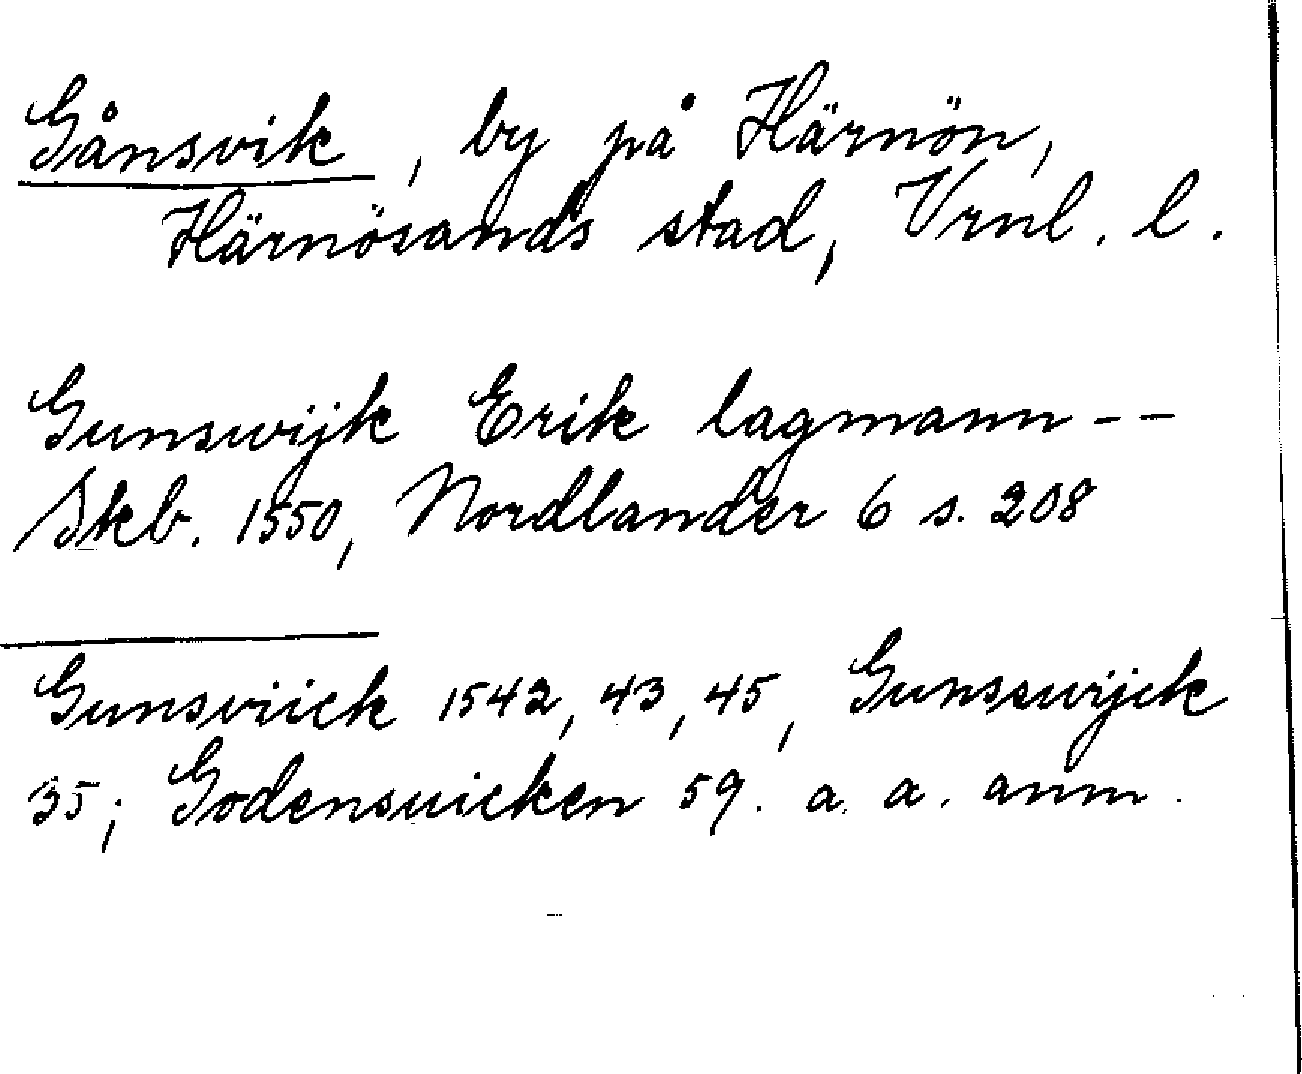 Gånsvik, by på Härnön,
Härnösands stad, Vrnl. l.
Gunswijk Erik lagmann --
Skb. 1550, Nordlander 6 s. 208
Gunsviick 1542, 43, 45, Gunsswijck
35; Godensuicken 59. a. a. anm.